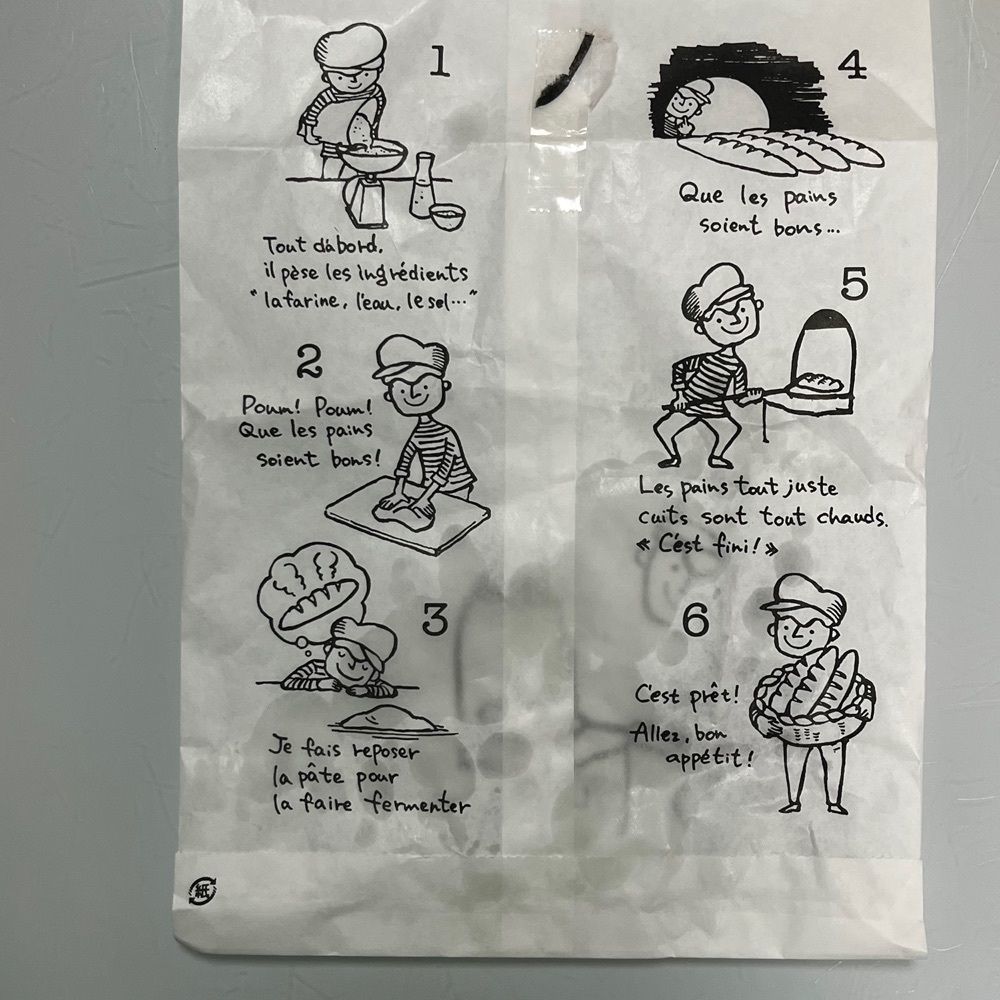 1
Tout dábord,
il pèse les ingrédients
"la farine, l'eau, le sel…"
2
Poum! Poum!
Que les pains
soient bons!
3
Je fais reposer
la pâte pour
la faire fermenter
4
Que les pains
soient bons…
5
Les pains tout juste
cuits sont tout chauds.
« C'est fini! »
6
C'est prêt!
Allez, bon
appétit!
紙